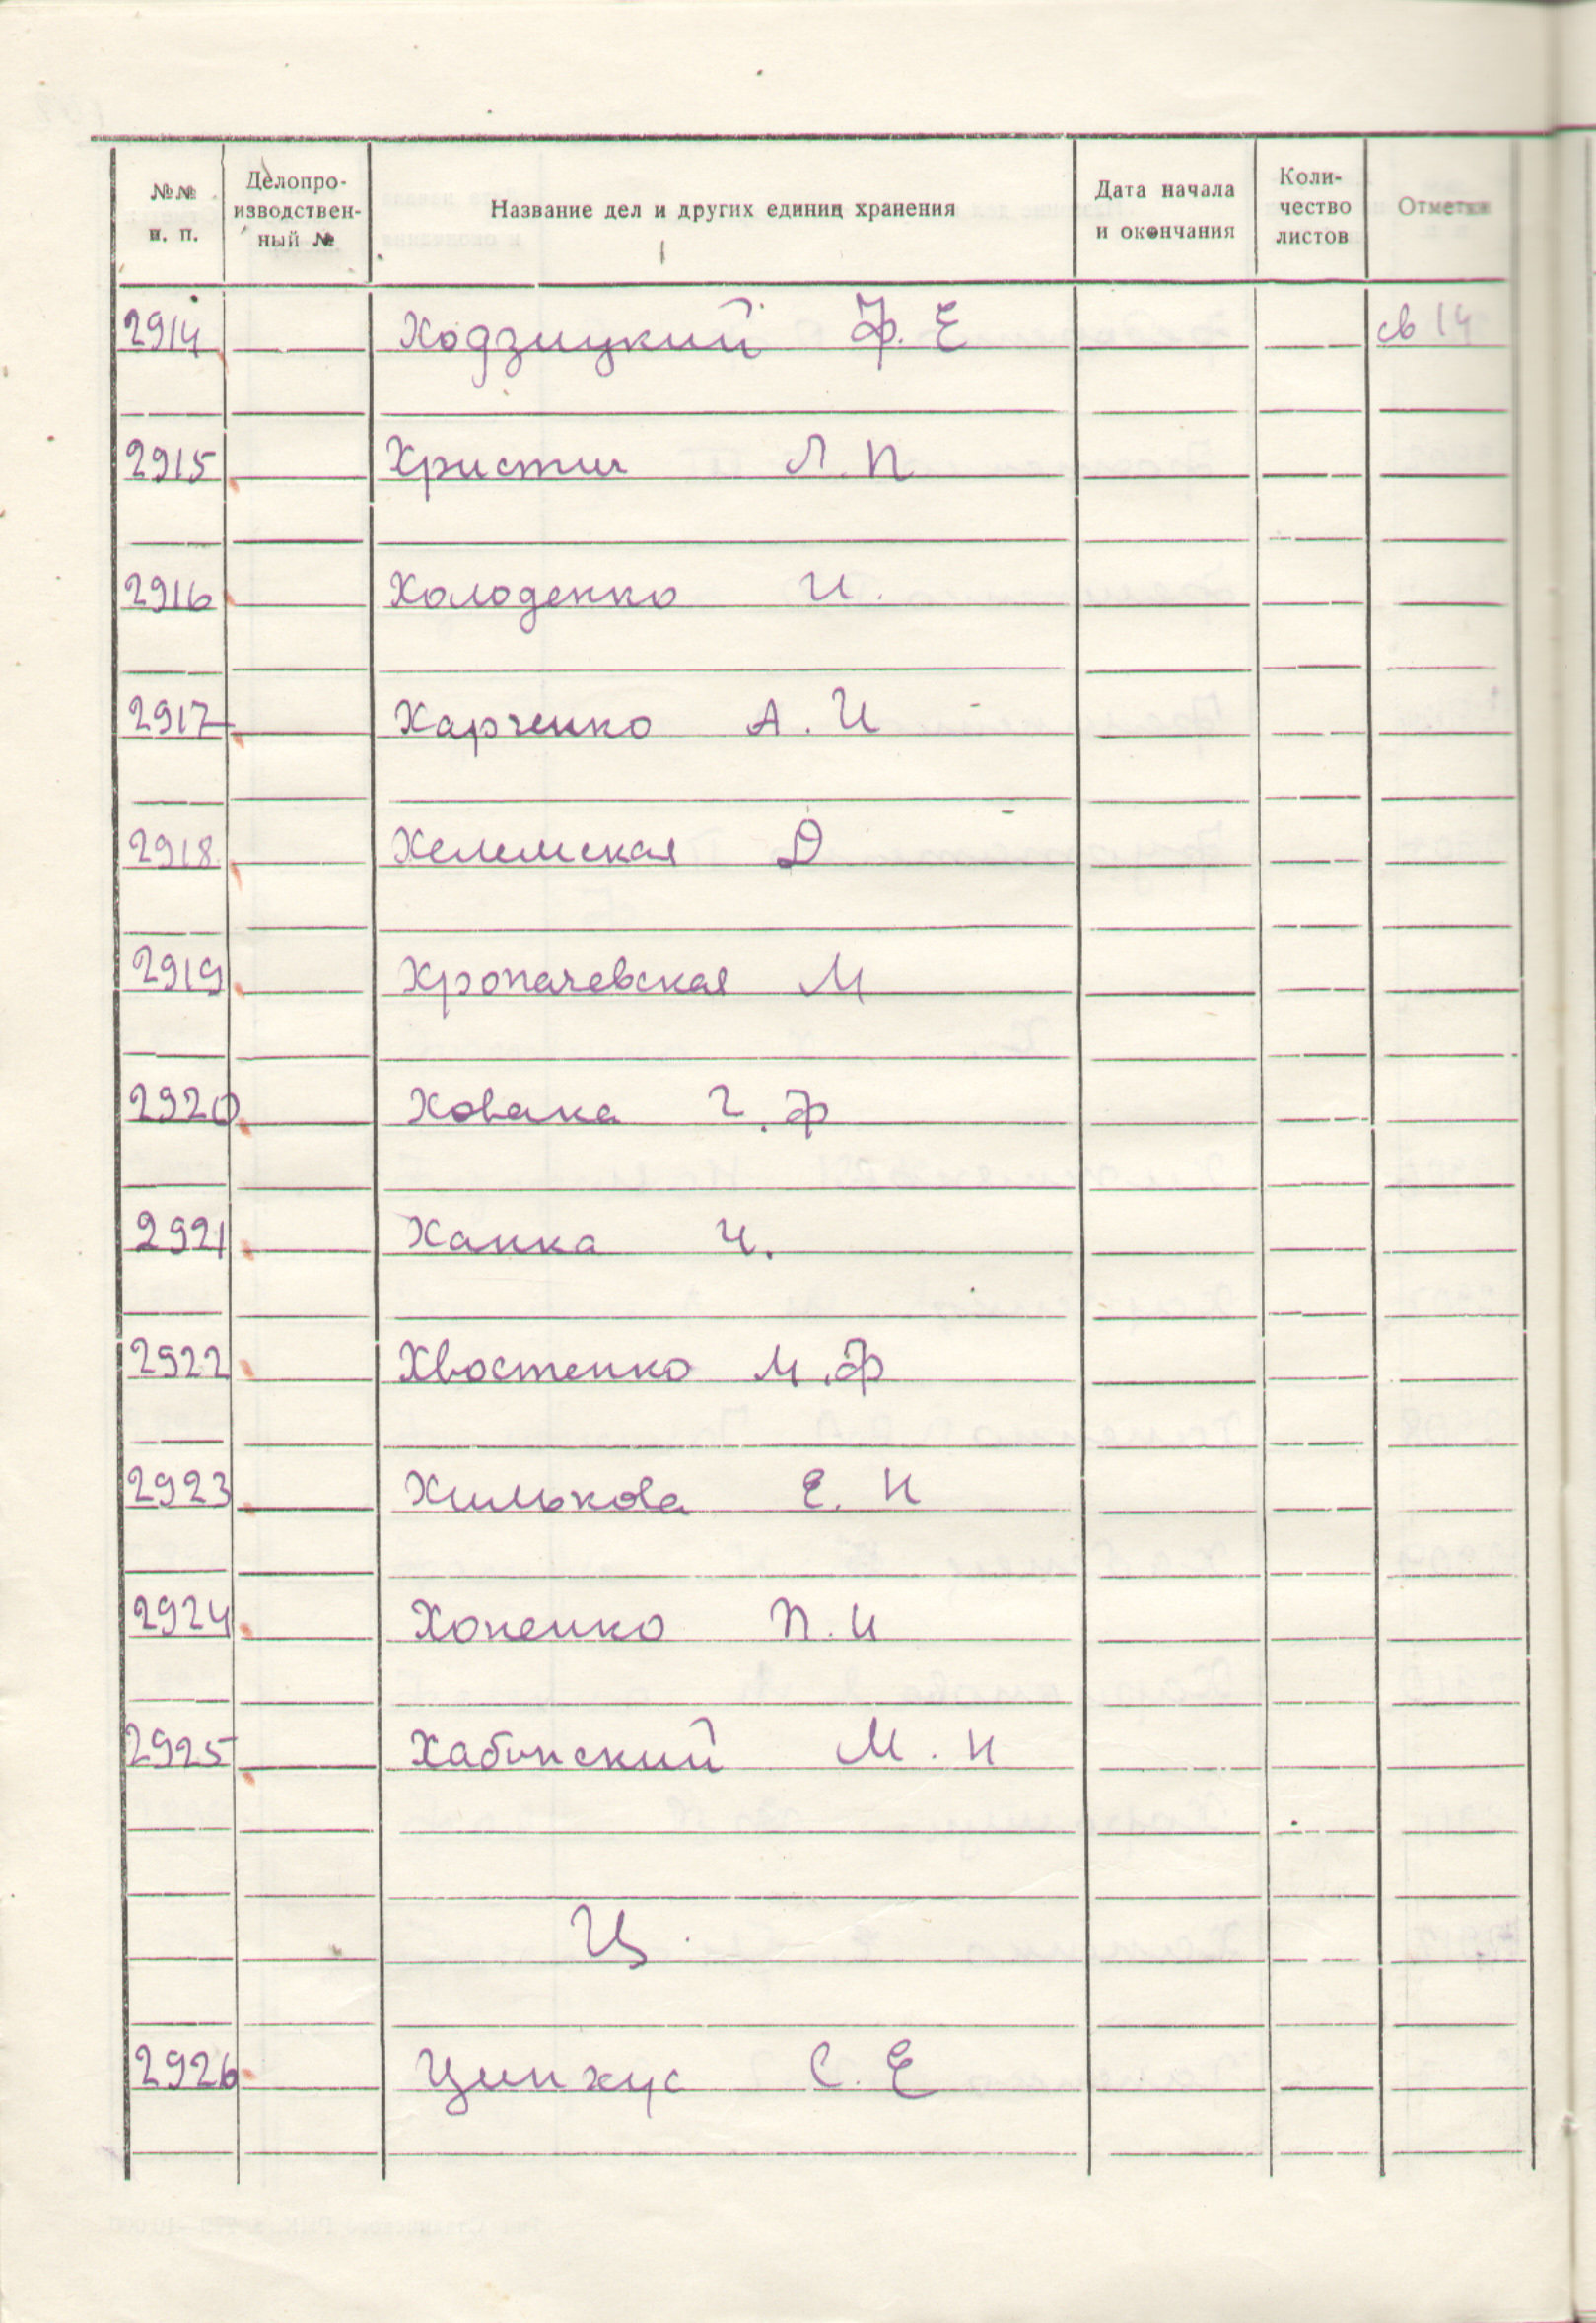 №№ п. п. Делопроизводственный № Название дел и других единиц хранения Дата начала и окончания Количество листов Отметки
2914 Ходзицкий Ф. Е св 14
2915 Христич Л. П
2916 Холоденко И.
2917 Харченко А. И
2918 Хелемская Д
2919 Хропачевская М
2920 Ховака Г. Ф
2921 Ханка И.
2922 Хвостенко М. Ф
2923 Хилькова Е. Н
2924 Хоненко П. И
2925 Хабинский М. Н
Ц
2926 Цинхус С. Е